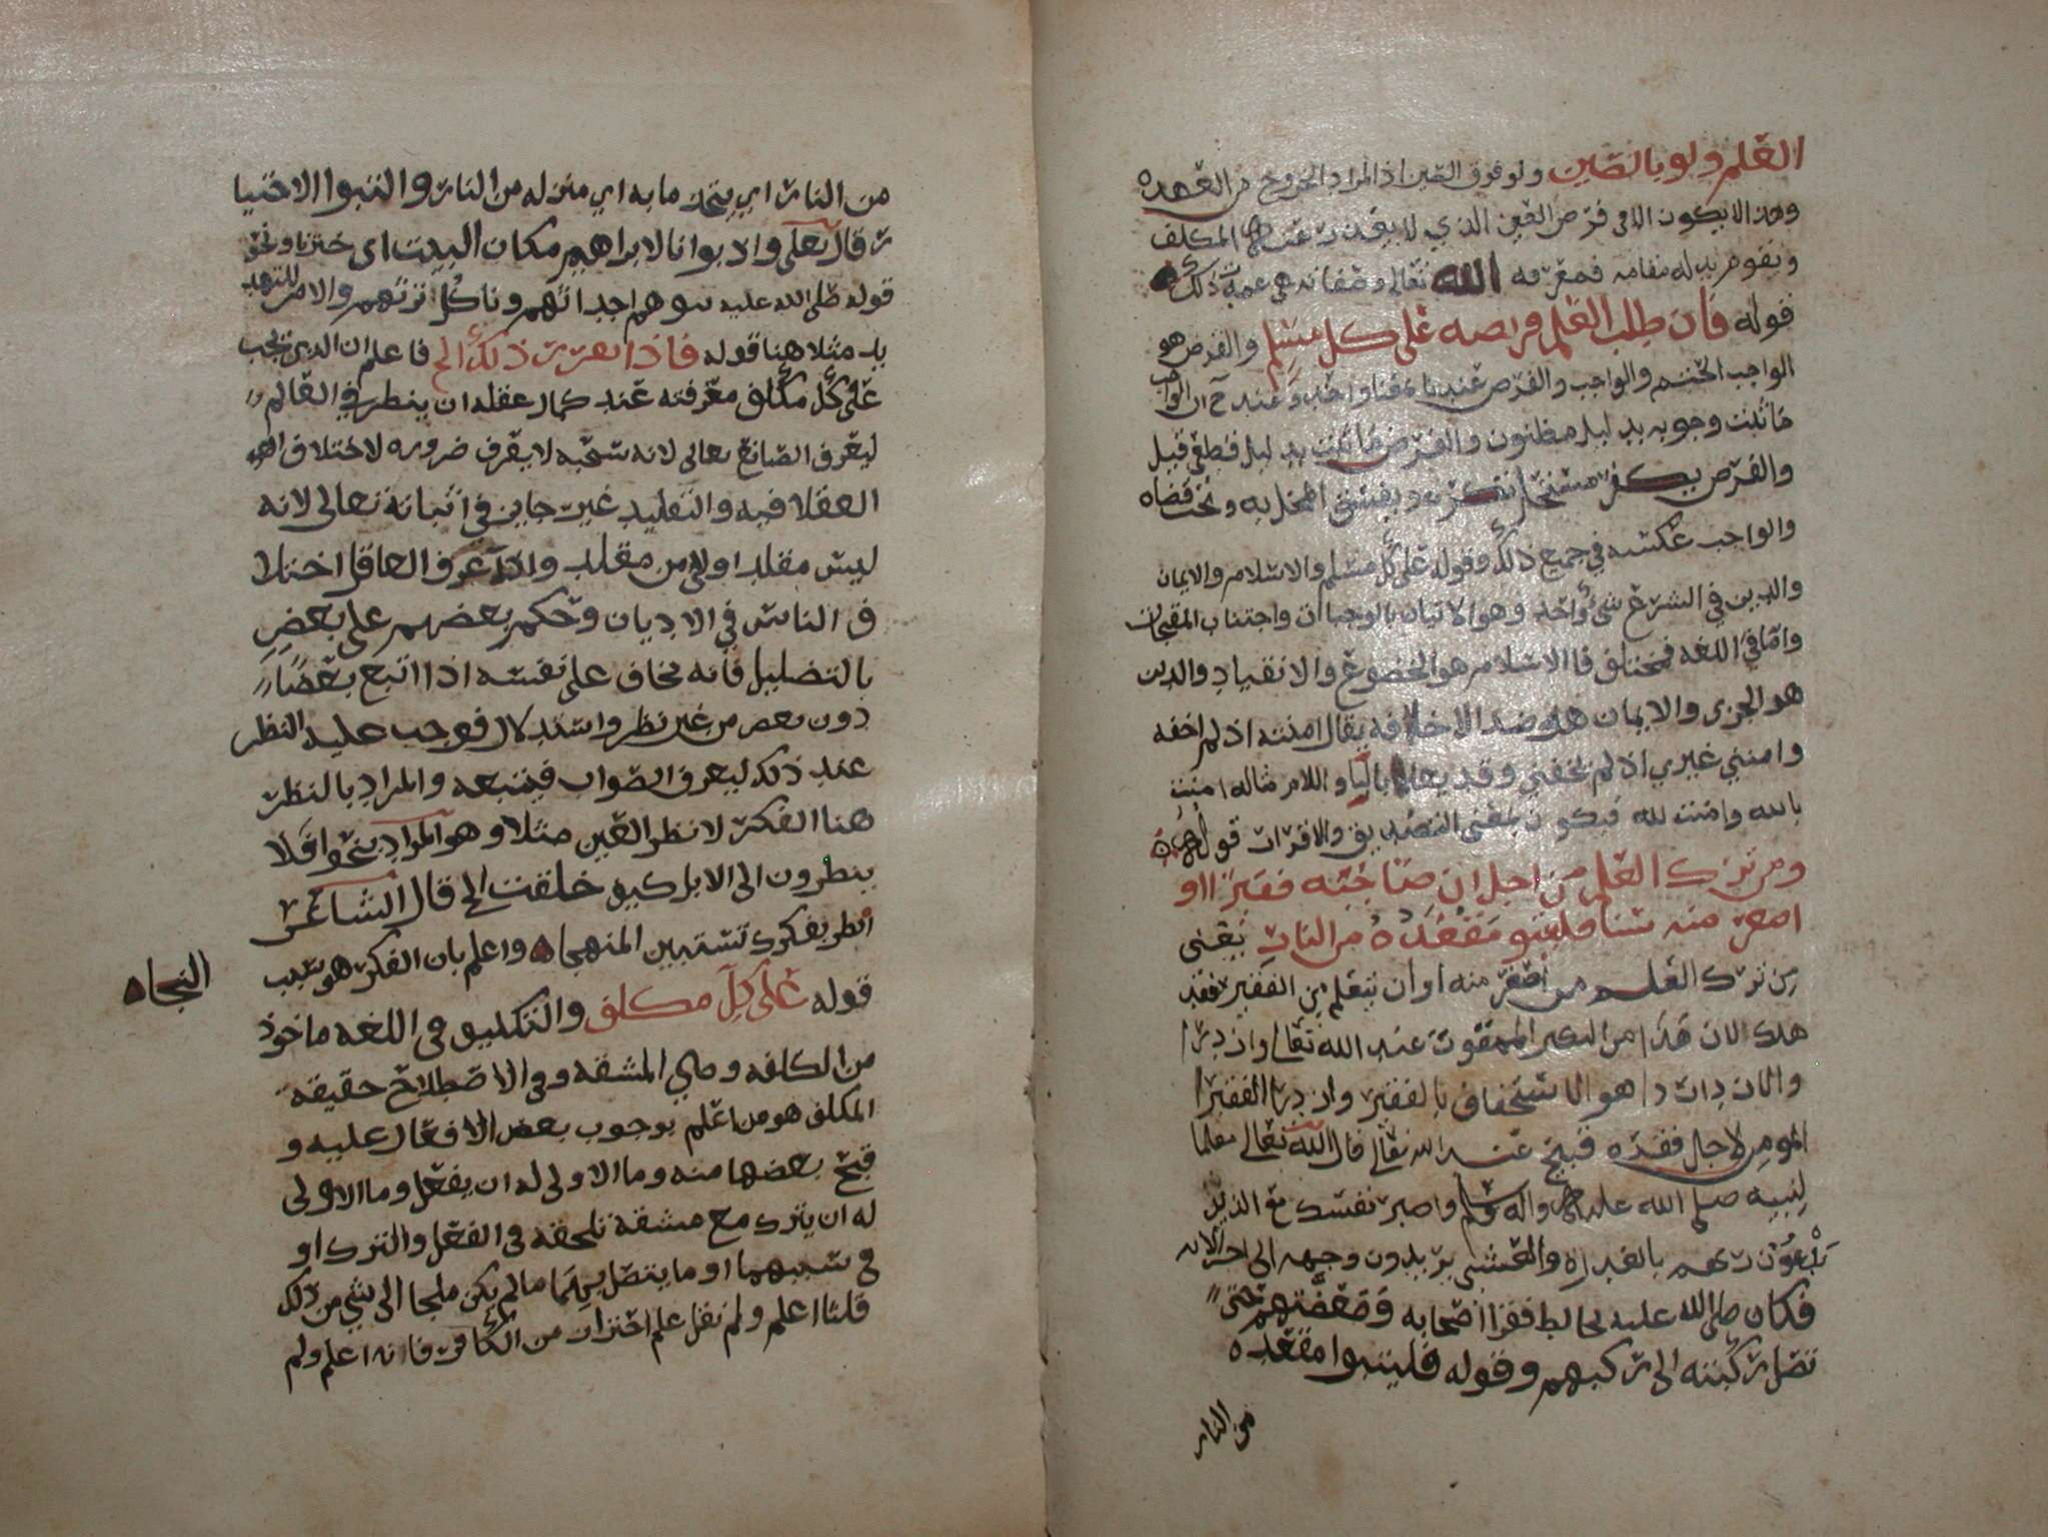 العلم ولو بالصين ولو فوق الصين اذ المراد الخروج من العهده
وهذا لا يكون الا في فرض العين الذي لا يقدر عنه المكلف
ويقوم بدله مقامه فمعرفة الله تعالى وصفاته هي عمدت ذلك
قوله فان طلب العلم فريضه على كل مسلم والفرض هو
الواجب الحتم والواجب والفرض عندنا معنا واحد وعند ح ان الواجب
ما ثبت وجوبه بدليل مظنون والفرض ما ثبت بدليل قطعي قيل
والفرض يكفر مستحل تركه ويفسق المخل به ويجب قضاه
والواجب عكسه في جميع ذلك وقوله على كل مسلم والاسلام والايمان
والدين في الشرع شي واحد وهو الاتيان بالوجبات واجتناب المقبحات
واما في اللغه فمختلف فالاسلام هو الخضوع والانقياد والدين
هو الجزى والايمان هو ضد الاخافه يقال امنته اذ لم اخفه
وامنني غيري اذ لم يخفني وقد يعدا بالبا واللام مثاله امنت
بالله وامنت لله فيكون بمعنى التصديق والاقرار قوله
ومن ترك العلم من اجل ان صاحبه فقيرا او
اصغر منه سنا فليتبو مقعده من النار يعني
من ترك العلم من اصغر منه او ان يتعلم من الفقير فقد
هلك لان هذا من الكبر الممقوت عند الله تعالى وازدرا
والازدرا هو الاستخفاف بالفقير وازدرا الفقير
المومن لاجل فقره قبيح عند الله تعالى قال الله تعالى معلما
لنبيه صلى الله عليه واله وسلم واصبر نفسك مع الذين
يدعون ربهم بالغداة والعشي يريدون وجهه الى اخر الايه
فكان صلى الله عليه يخالط فقرا اصحابه وضعفتهم حتى
تصل ركبته الى ركبهم وقوله فليتبوا مقعده
من النار
من النار اي يتخد ما به اي منزله من النار والتبوا الاختيا
ر قال تعلى واذ بوانا لابراهيم مكان البيت اى خيرنا ونحو
قوله صلى الله عليه نبوهم اجداثهم وناكل تراثهم والامر للتهد
يد مثلا هنا قوله فاذا تقرر ذلك الخ فاعلم ان الذي يجب
على كل مكلف معرفته عند كمال عقله ان ينظر في العالم
ليعرف الصانع تعالى لانه سبحنه لا يعرف ضروره لاختلاف
العقلا فيه والتقليد غير جايز في اثباته تعالى لانه
ليس مقلد اولى من مقلد واذا عرف العاقل اختلا
ف الناس في الاديان وحكم بعضهم على بعض
بالتضليل فانه يخاف على نفسه اذا اتبع بعضا
دون بعض من غير نظر واستدلال فوجب عليه النظر
عند ذلك ليعرف الصواب فيتبعه والمراد بالنظر
هنا الفكر لا نظر العين مثلا وهو المراد بنحو افلا
ينظرون الى الابل كيف خلقت الخ قال الشاعر
انظر بفكرك تستبين المنهجا واعلم بان الفكر هو سبب
النجاه
قوله على كل مكلف والتكليف في اللغه ماخوذ
من الكلفه وهي المشقه وفي الاصطلاح حقيقة
المكلف هو من اعلم بوجوب بعض الافعال عليه و
قبح بعضها منه وما الاولى له ان يفعل وما الاولى
له ان يترك مع مشقة تلحقه في الفعل والترك او
في سببهما او ما يتصل بهما ما لم يكن ملجا الى شي من ذلك
قلنا اعلم ولم نقل علم احتراز من الكافر فانه اعلم ولم